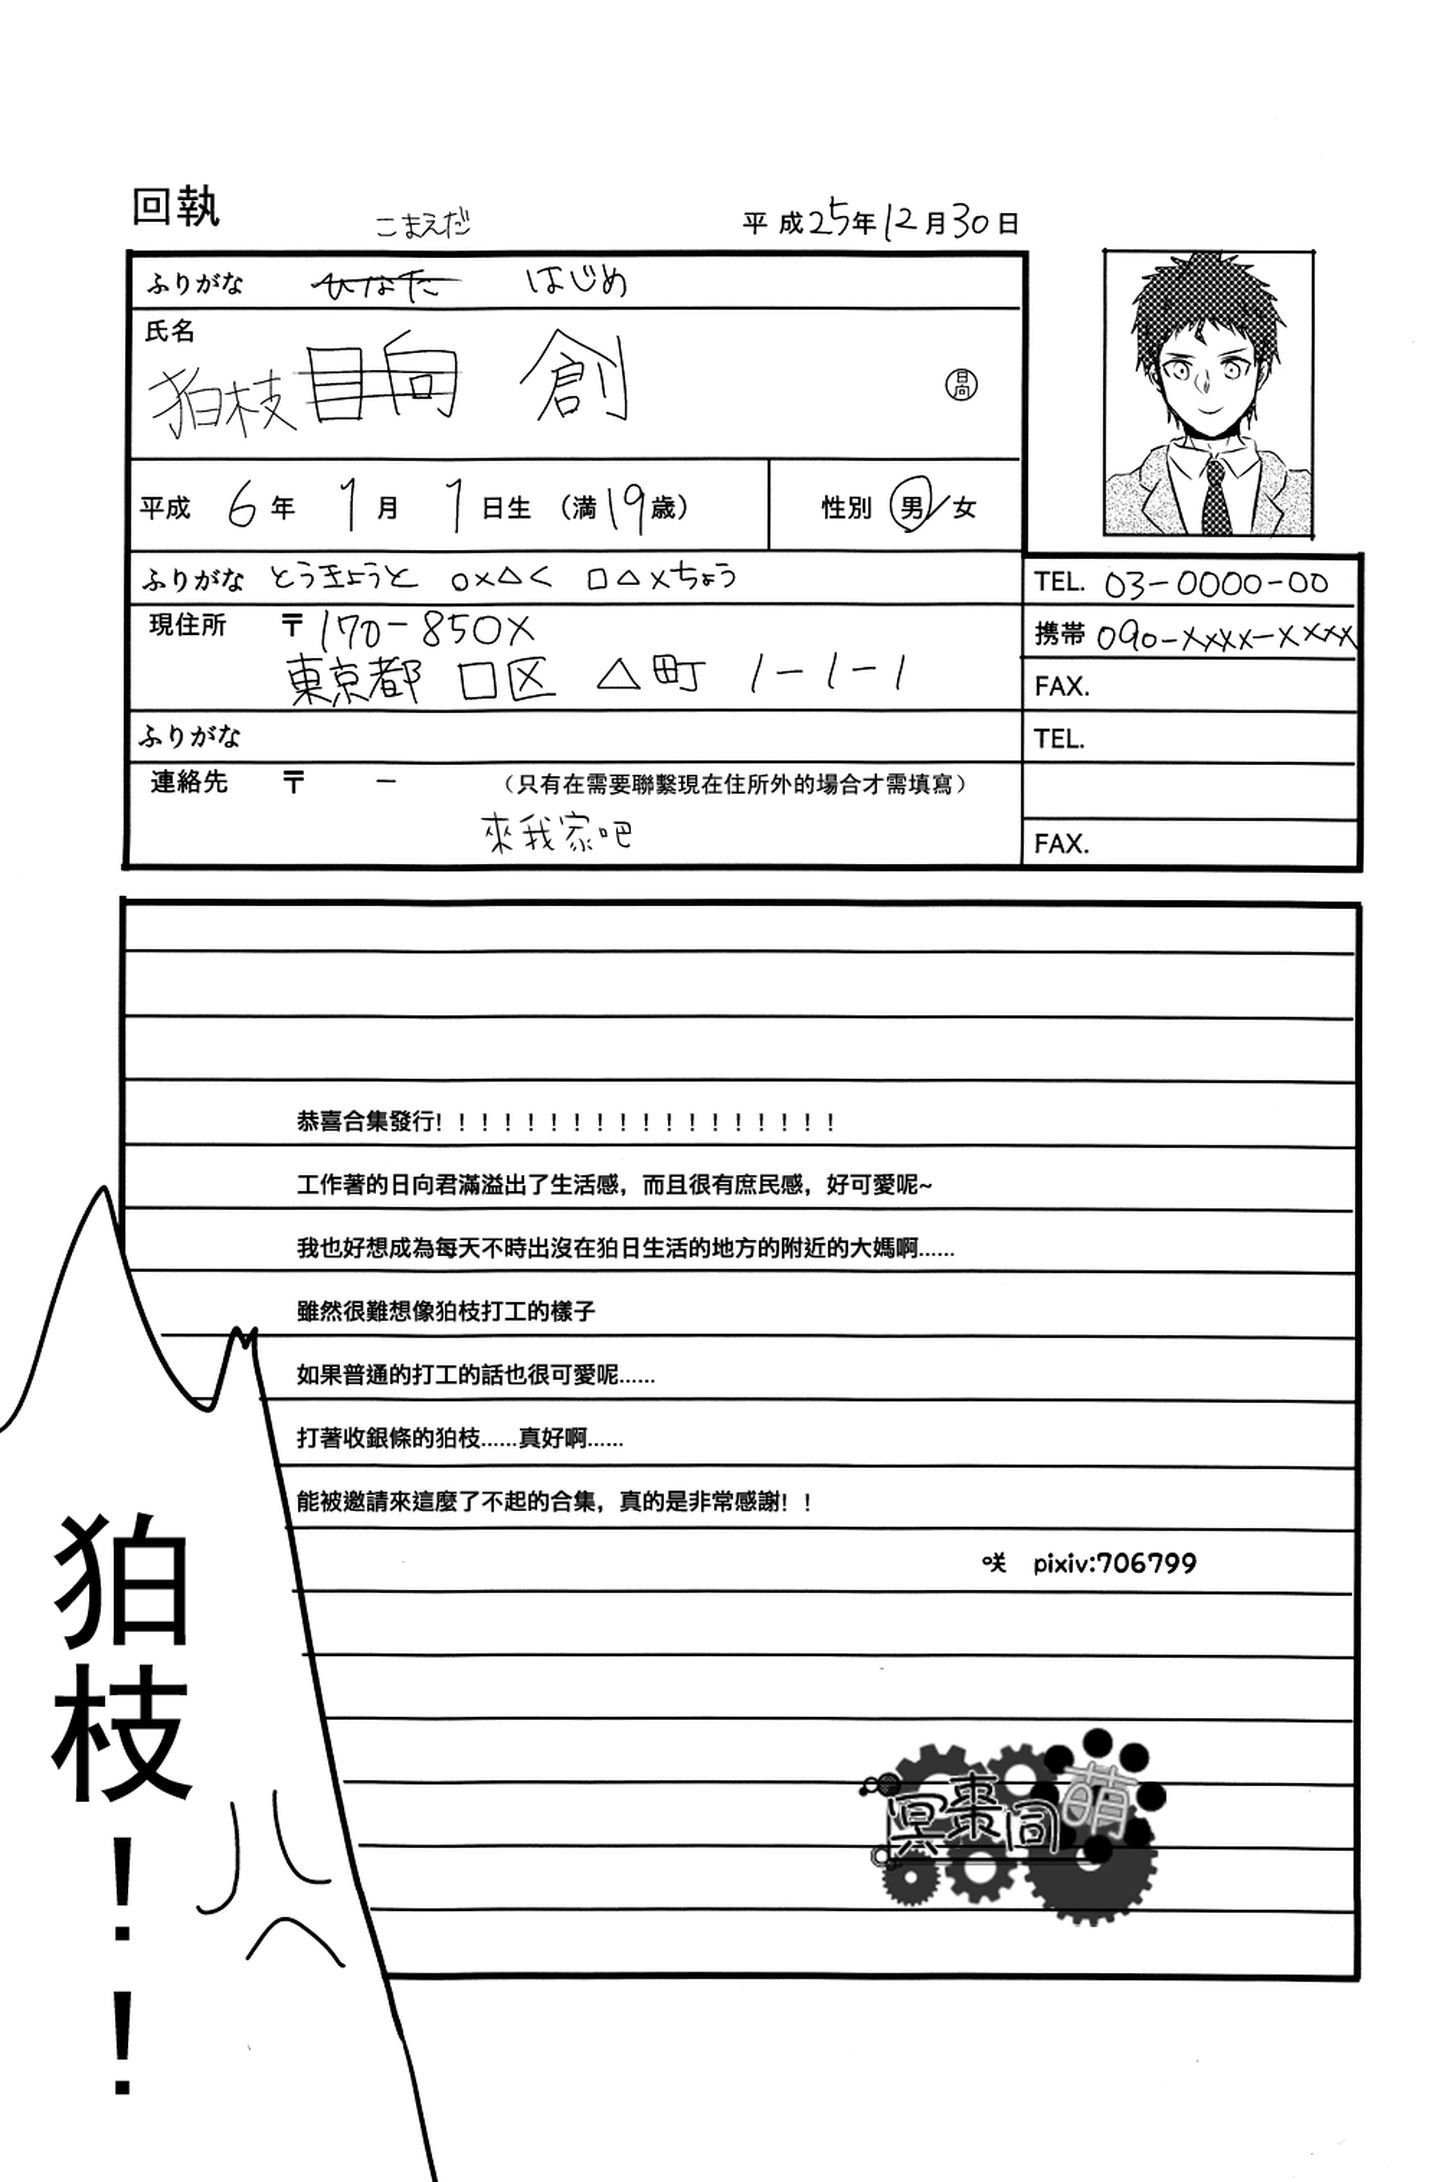 回執
こまえだ
平成25年12月30日
ふりがな ひなた はじめ
氏名
狛枝 日向 創
日向
平成 6年 1月 1日生 (満19歳) 性別 男/女
ふりがな とうきょうと ○×△く □△×ちょう
TEL. 03-0000-00
現住所 〒170-850X
携帯 090-XXXX-XXXX
東京都 □区 △町 1-1-1
FAX.
ふりがな
TEL.
連絡先 〒 － （只有在需要聯繫現在住所外的場合才需填寫）
來我家吧
FAX.
恭喜合集發行！！！！！！！！！！！！！！！！！！
工作著的日向君滿溢出了生活感，而且很有庶民感，好可愛呢~
我也好想成為每天不時出沒在狛日生活的地方的附近的大媽啊......
雖然很難想像狛枝打工的樣子
如果普通的打工的話也很可愛呢......
打著收銀條的狛枝......真好啊......
能被邀請來這麼了不起的合集，真的是非常感謝！！
咲 pixiv:706799
狛枝！！
冥棗同萌